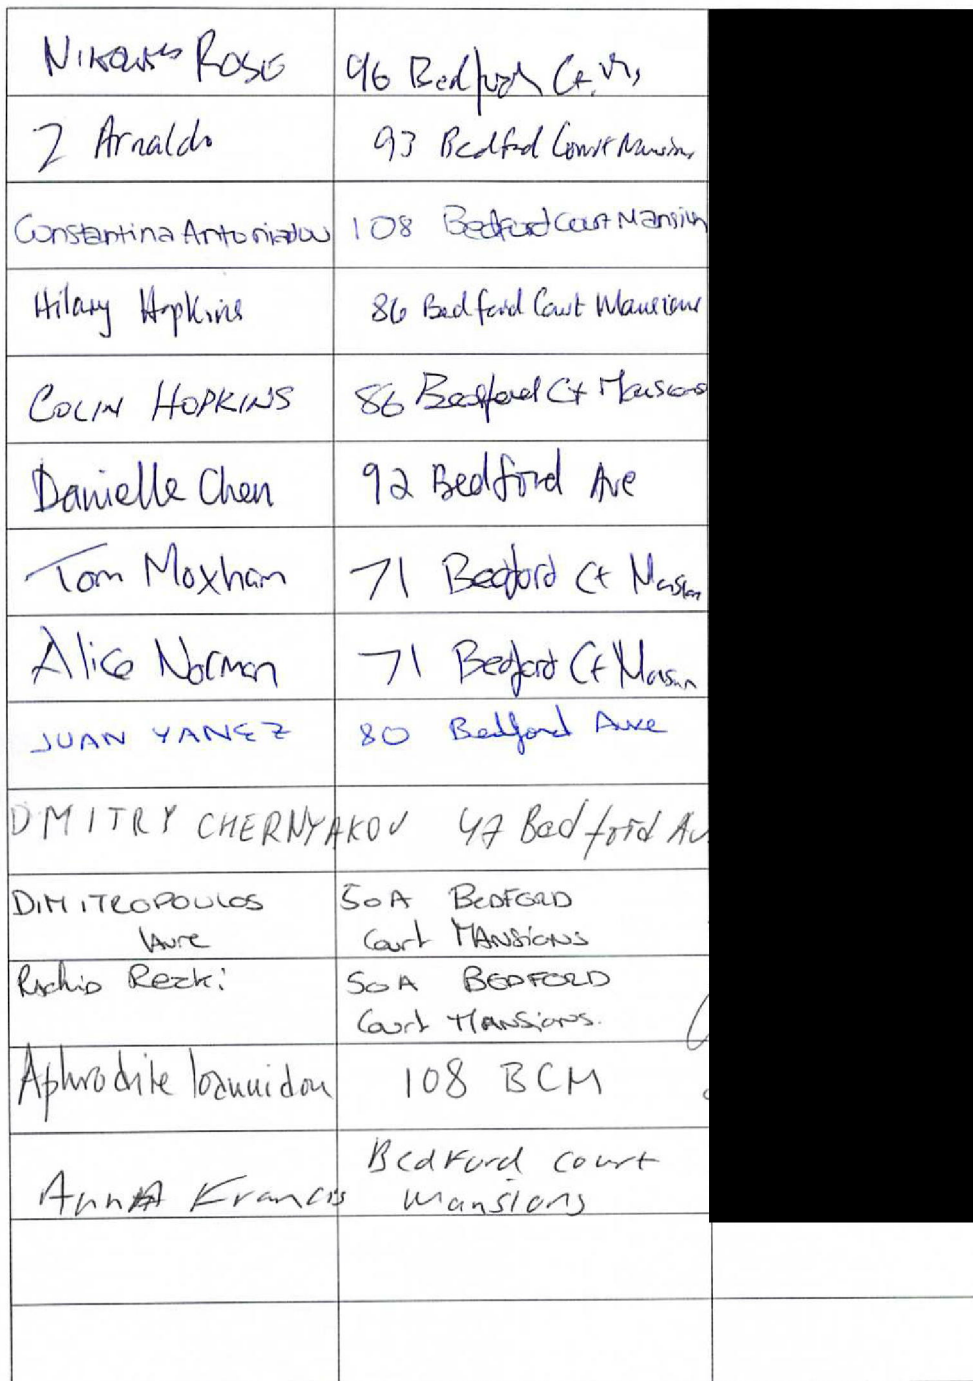 Nikolas Rose 96 Bedford Ct. Ms
J Arnaldo 93 Bedford Court Mansions
Constantina Antoniadou 108 Bedford Court Mansion
Hilary Hopkins 86 Bedford Court Mansions
COLIN HOPKINS 86 Bedford Ct Mansions
Danielle Chen 92 Bedford Ave
Tom Moxham 71 Bedford Ct Mansion
Alice Norman 71 Bedford Ct Mansion
JUAN YANEZ 80 Bedford Ave
DMITRY CHERNYAKOV 47 Bedford Av
DIMITROPOULOS 50A BEDFORD
Laure Court MANSIONS
Rachid Rezki 50A BEDFORD
Court MANSIONS.
Aphrodite Ioannidou 108 BCM
Bedford court
AnnA Francis mansions